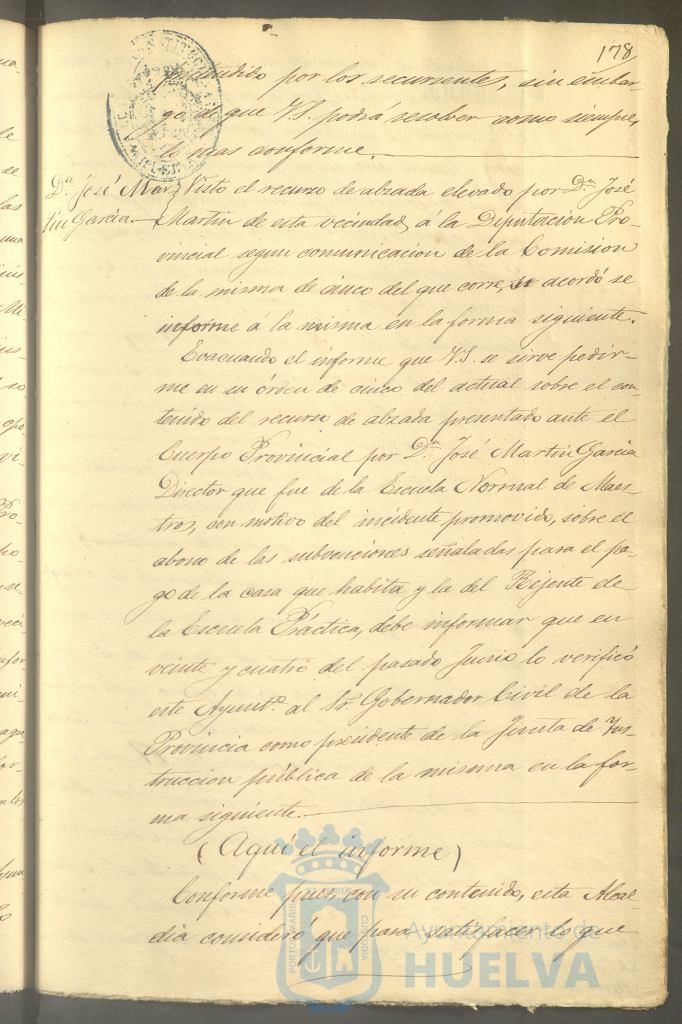 178
pretendido por los recurrentes, sin embar-
go de que V.S. podrá resolver como siempre,
lo mas conforme.
Dn. José Mar-
tin Garcia.
Visto el recurso de alzada elevado por Dn. José
Martin de esta vecindad, á la Diputacion Pro-
vincial segun comunicacion de la Comision
de la misma de cinco del que corre, se acordó se
informe á la misma en la forma siguiente.
Evacuando el informe que V.S. se sirve pedir-
me en su órden de cinco del actual sobre el con-
tenido del recurso de alzada presentado ante el
Cuerpo Provincial por Dn. José Martin Garcia
Director que fue de la Escuela Normal de Maes-
tros, con motivo del incidente promovido, sobre el
abono de las subvenciones señaladas para el pa-
go de la casa que habita y la del Rejente de
la Escuela Práctica, debe informar que en
veinte y cuatro del pasado Junio lo verificó
este Ayunto. al Sr. Gobernador Civil de la
Provincia como presidente de la Junta de Ins-
truccion pública de la misma en la for-
ma siguiente.
(Aqui el informe)
Conforme pues con su contenido, esta Alcal-
dia consideró que para satisfacer lo que
Ayuntamiento de
HUELVA